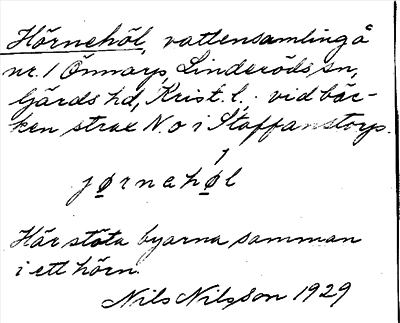 Hörnehöl, vattensamling å
nr. 1 Önnarp, Linderöds sn,
Gärds hd, Krist. l., vid bäc-
ken strax N.o i Staffanstorp.
jørnehǿl
Här stöta byarna samman
i ett hörn.
Nils Nilsson 1929